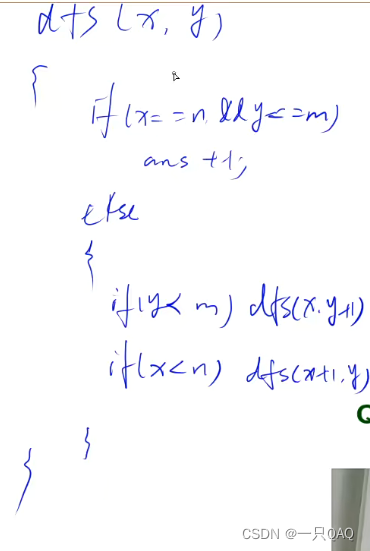 dfs(x, y)
{
if(x==n && y<=m)
ans +1;
else
{
if(y<m) dfs(x,y+1)
if(x<n) dfs(x+1,y)
}
}
Q
CSDN @一只QAQ